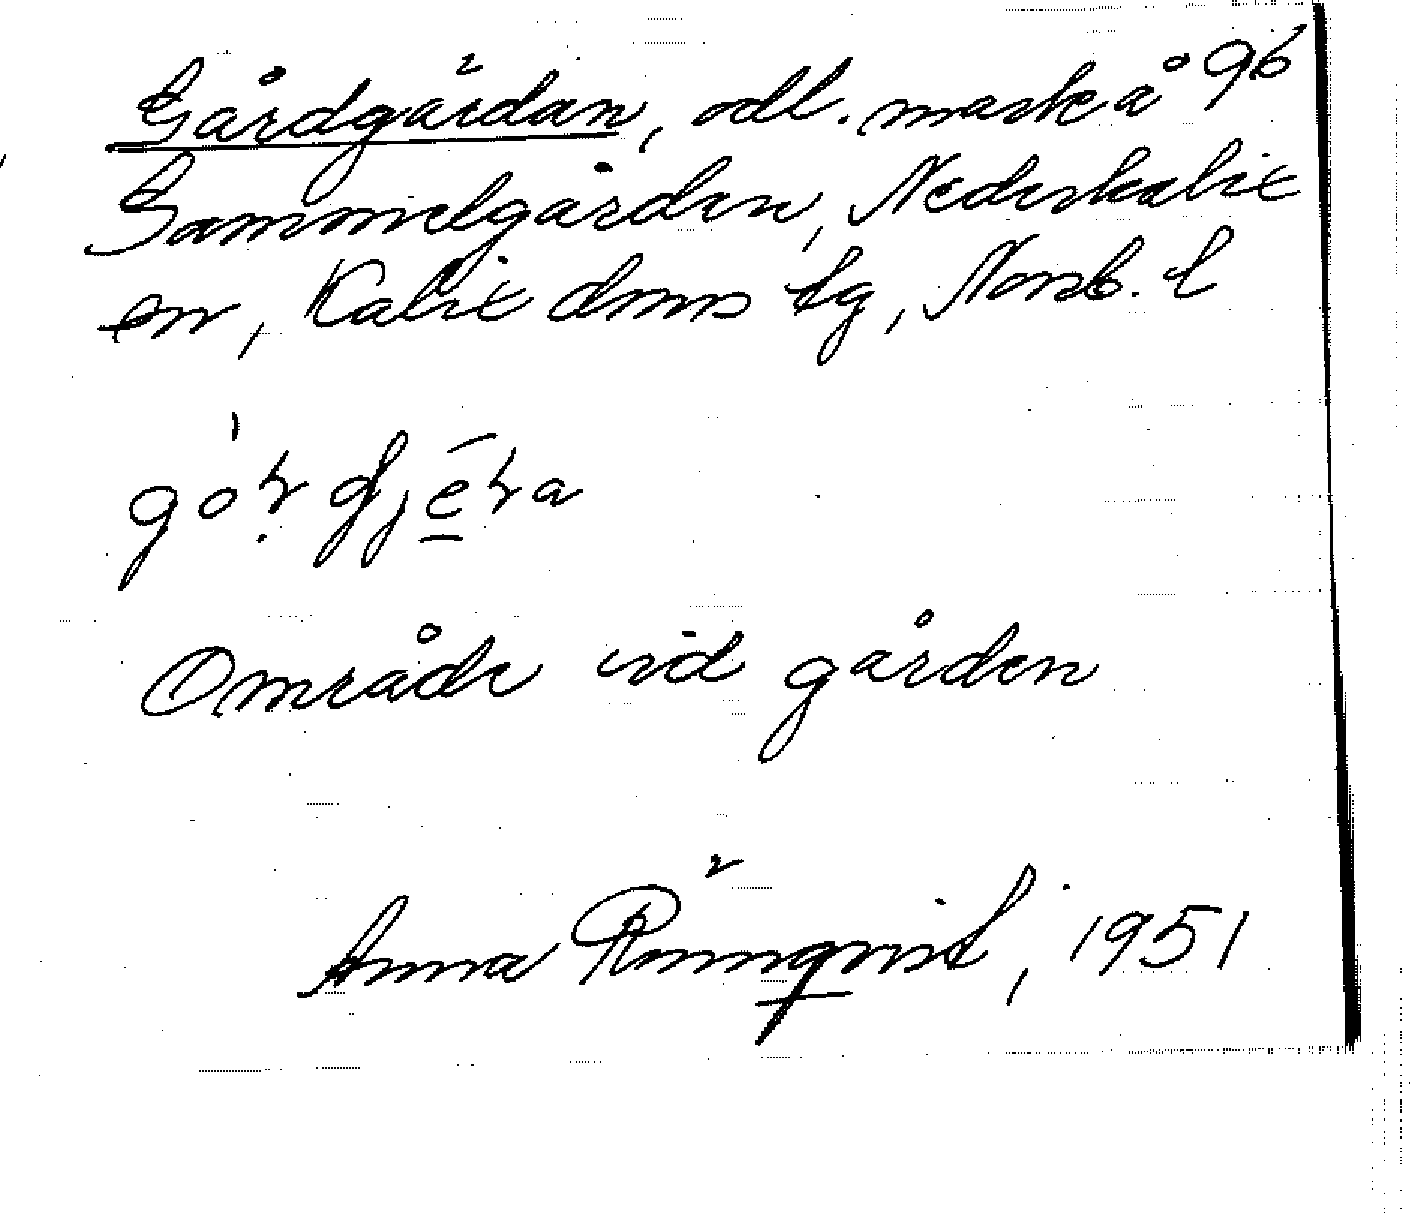 Gårdgärdan, odl. mark å 96
Gammelgården, Nederkalix
sn, Kalix dms tg, Norrb. l
Område vid gården
Anna Rönnqvist, 1951